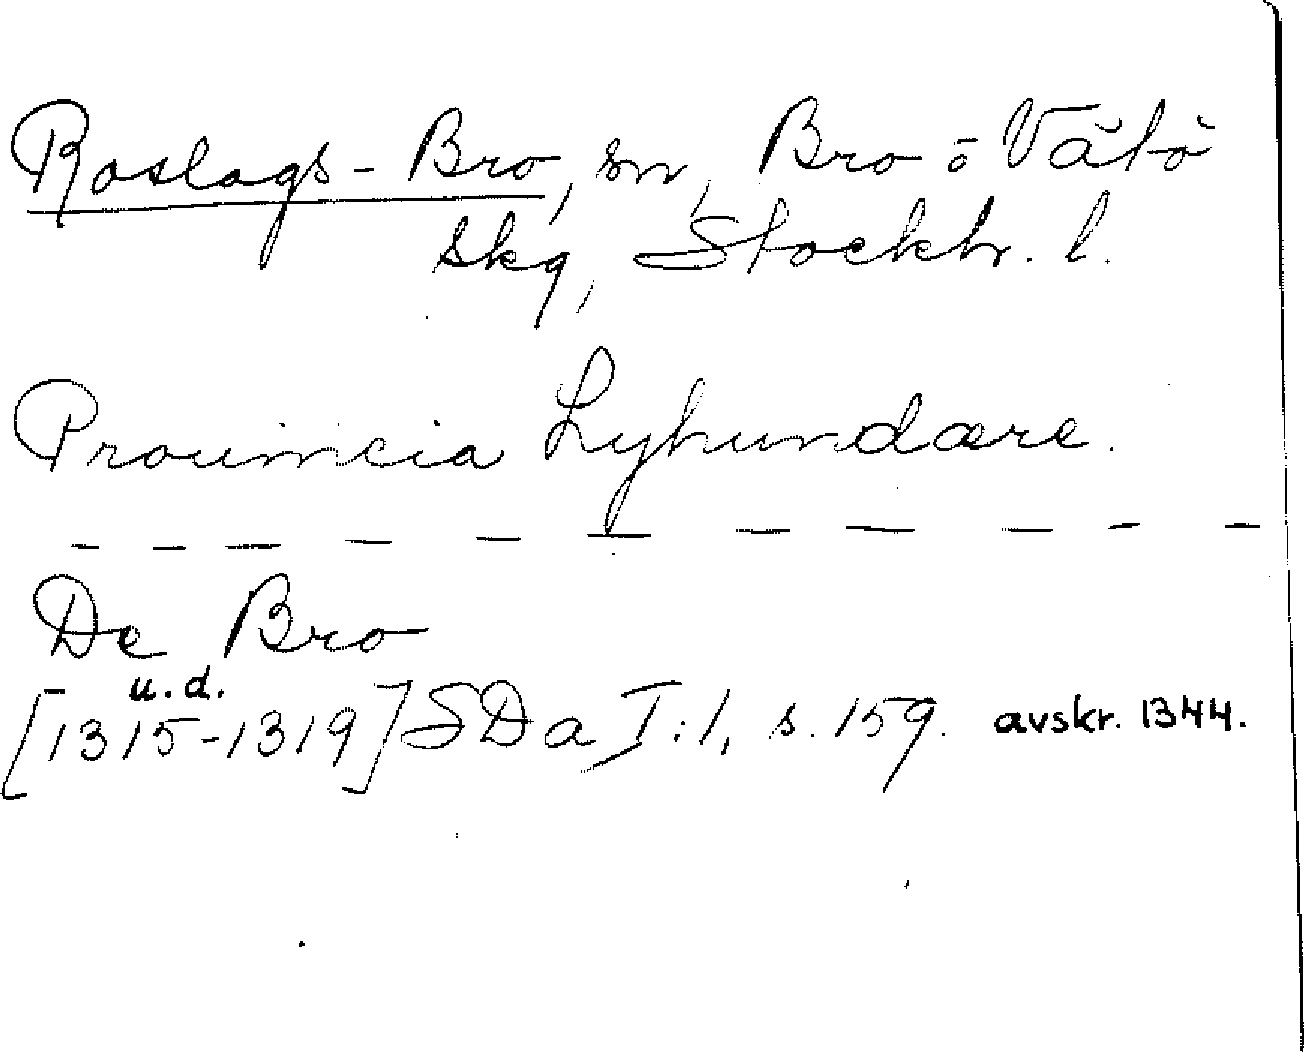 Roslags-Bro, sn, Bro o Vätö
skg, Stockh. l.
Prouincia Lyhundære.
— — — — — — — — — — —
De Bro
u.d.
[1315-1319] SDa I:1, s. 159. avskr. 1344.